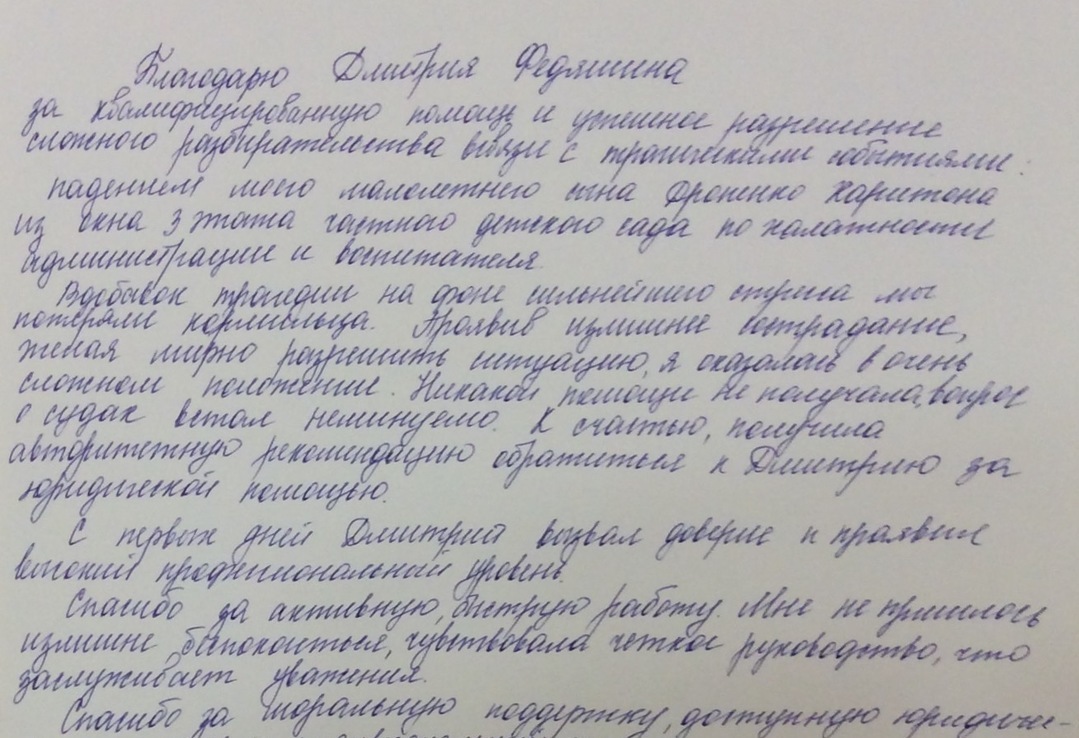 Благодарю Дмитрия Федяшина
за квалифицированную помощь и успешное разрешение
сложного разбирательства в связи с трагическими событиями:
падением моего малолетнего сына Фроленко Харитона
из окна 3 этажа частного детского сада по халатности
администрации и воспитателя.
Вдобавок трагедии на фоне сильнейшего стресса мы
потеряли кормильца. Проявив излишнее сострадание,
желая мирно разрешить ситуацию, я оказалась в очень
сложном положении. Никакой помощи не получала, вопрос
о судах встал неминуемо. К счастью, получила
авторитетную рекомендацию обратиться к Дмитрию за
юридической помощью.
С первых дней Дмитрий вызвал доверие и проявил
высокий профессиональный уровень.
Спасибо за активную, быструю работу. Мне не пришлось
излишне беспокоиться, чувствовала четкое руководство, что
заслуживает уважения.
Спасибо за моральную поддержку, доступную юридичес-